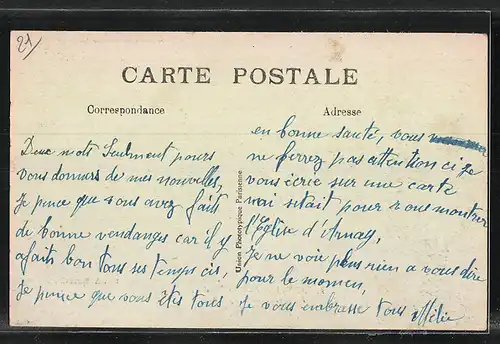 21
CARTE POSTALE
Correspondance
Adresse
Deux mots Seulment pours
vous donnurs de mes nouvelles,
Je pence que vous avez faits
de bonne vendanges car il y
a faits bon tous ses temps ci.
Je pence que vous êtes tous
Union Phototypique Parisienne
en bonne santé, vous
ne ferrez pas attention ci je
vous écrie sur une carte
mai sétait pour vous montrer
l'Eglise d'Arnay,
Je ne voie plus rien a vous dire
pour le momen,
Je vous embrasse tous Mélie